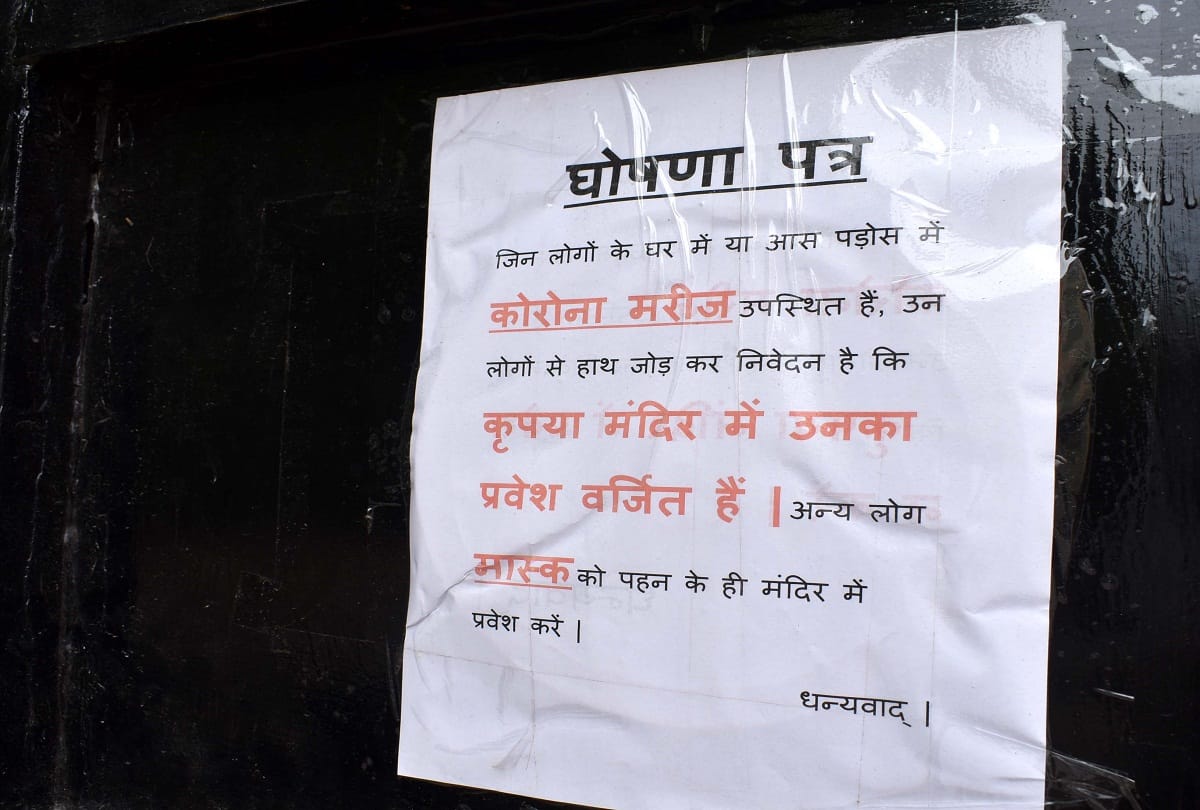 घोषणा पत्र
जिन लोगों के घर में या आस पड़ोस में
कोरोना मरीज उपस्थित हैं, उन
लोगों से हाथ जोड़ कर निवेदन है कि
कृपया मंदिर में उनका
प्रवेश वर्जित हैं | अन्य लोग
मास्क को पहन के ही मंदिर में
प्रवेश करें |
धन्यवाद् |